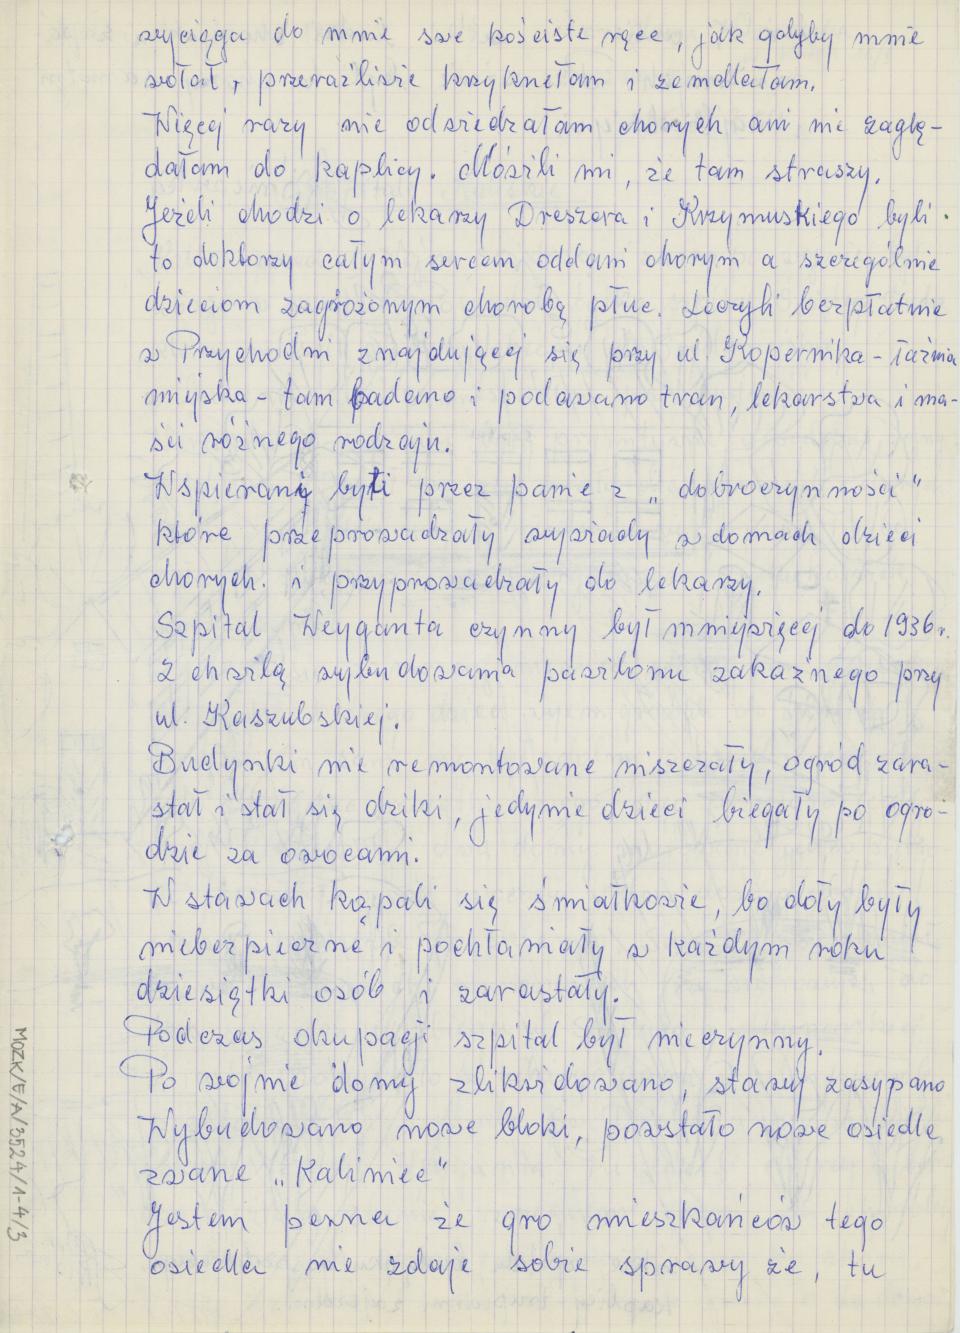 wyciąga do mnie swe kościste ręce, jak gdyby mnie
wołał, przeraźliwie krzyknełam i zemdlałam.
Więcej razy nie odwiedzałam chorych ani nie zaglę-
dałam do kaplicy. Mówili mi, że tam straszy.
Jeżeli chodzi o lekarzy Dreszera i Krzymuskiego byli
to doktorzy całym sercem oddani chorym a szczególnie
dzieciom zagrożonym chorobą płuc. Leczyli bezpłatnie
w Przychodni znajdującej się przy ul. Kopernika - łaźnia
miejska - tam badano i podawano tran, lekarstwa i ma-
ści różnego rodzaju.
Wspierani byli przez panie z „dobroczynności"
które przeprowadzały wywiady w domach dzieci
chorych. i przyprowadzały do lekarzy.
Szpital Weyganta czynny był mniejwięcej do 1936 r.
z chwilą wybudowania pawilonu zakaźnego przy
ul. Kaszubskiej.
Budynki nie remontowane niszczały, ogród zara-
stał i stał się dziki, jedynie dzieci biegały po ogro-
dzie za owocami.
W stawach kąpali się śmiałkowie, bo doły były
niebezpieczne i pochłaniały w każdym roku
dziesiątki osób i zarastały.
Podczas okupacji szpital był nieczynny.
Po wojnie domy zlikwidowano, stawy zasypano
Wybudowano nowe bloki, powstało nowe osiedle
zwane „Kaliniec"
Jestem pewna że gro mieszkańców tego
osiedla nie zdaje sobie sprawy że, tu
MOZK/E/A/3524/1-4/3